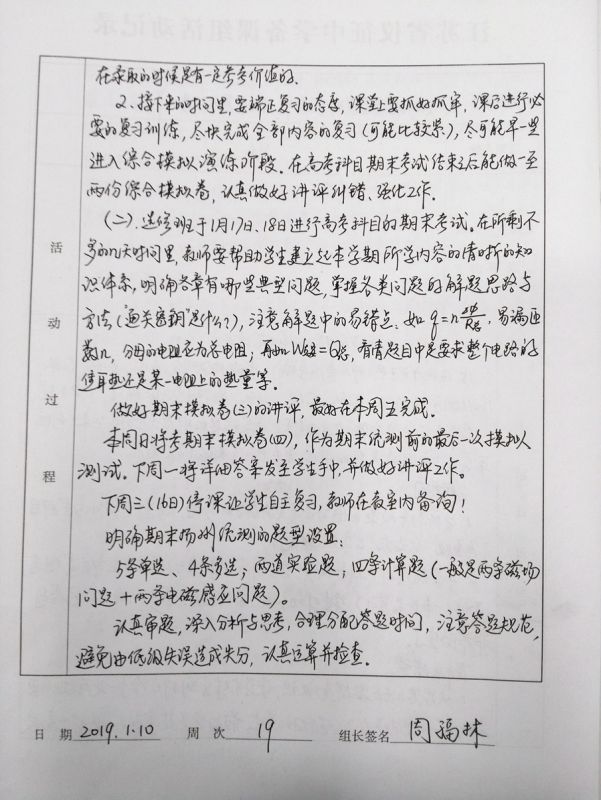 在录取的时候是有一定参考价值的.
2、接下来的时间里,要端正复习的态度,课堂上要抓好抓牢,课后进行必
要的复习训练,尽快完成全部内容的复习(可能比较紧),尽可能早一些
进入综合模拟演练阶段.在高考科目期末考试结束之后能做一至
两份综合模拟卷,认真做好讲评纠错、强化工作.
(二).选修班于1月17日、18日进行高考科目的期末考试.在所剩不
多的几天时间里,教师要帮助学生建立起本学期所学内容的清晰的知
识体系,明确各章有哪些典型问题,掌握各类问题的解题思路与
方法("通关密钥"是什么?),注意解题中的易错点.如q=nΔΦ/R总,易漏匝
数n,分母的电阻应为总电阻;再如W克安=Q总,看清题目中是要求整个电路的
焦耳热还是某一电阻上的热量等.
做好期末模拟卷(三)的讲评,最好在本周五完成.
本周日将考期末模拟卷(四),作为期末统测前的最后一次模拟
测试.下周一将详细答案发至学生手中,并做好讲评工作.
下周三(16日)停课让学生自主复习,教师在教室内备询!
明确期末扬州统测的题型设置:
5条单选、4条多选;两道实验题;四条计算题(一般是两条磁场
问题+两条电磁感应问题).
认真审题,深入分析与思考,合理分配答题时间,注意答题规范,
避免由低级失误造成失分,认真运算并检查.
活
动
过
程
日 期 2019.1.10 周 次 19 组长签名 周福林